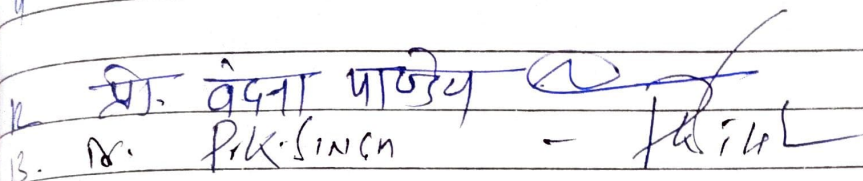 12. प्रो. वंदना पाण्डेय
13. Dr. P.K. SINGH -